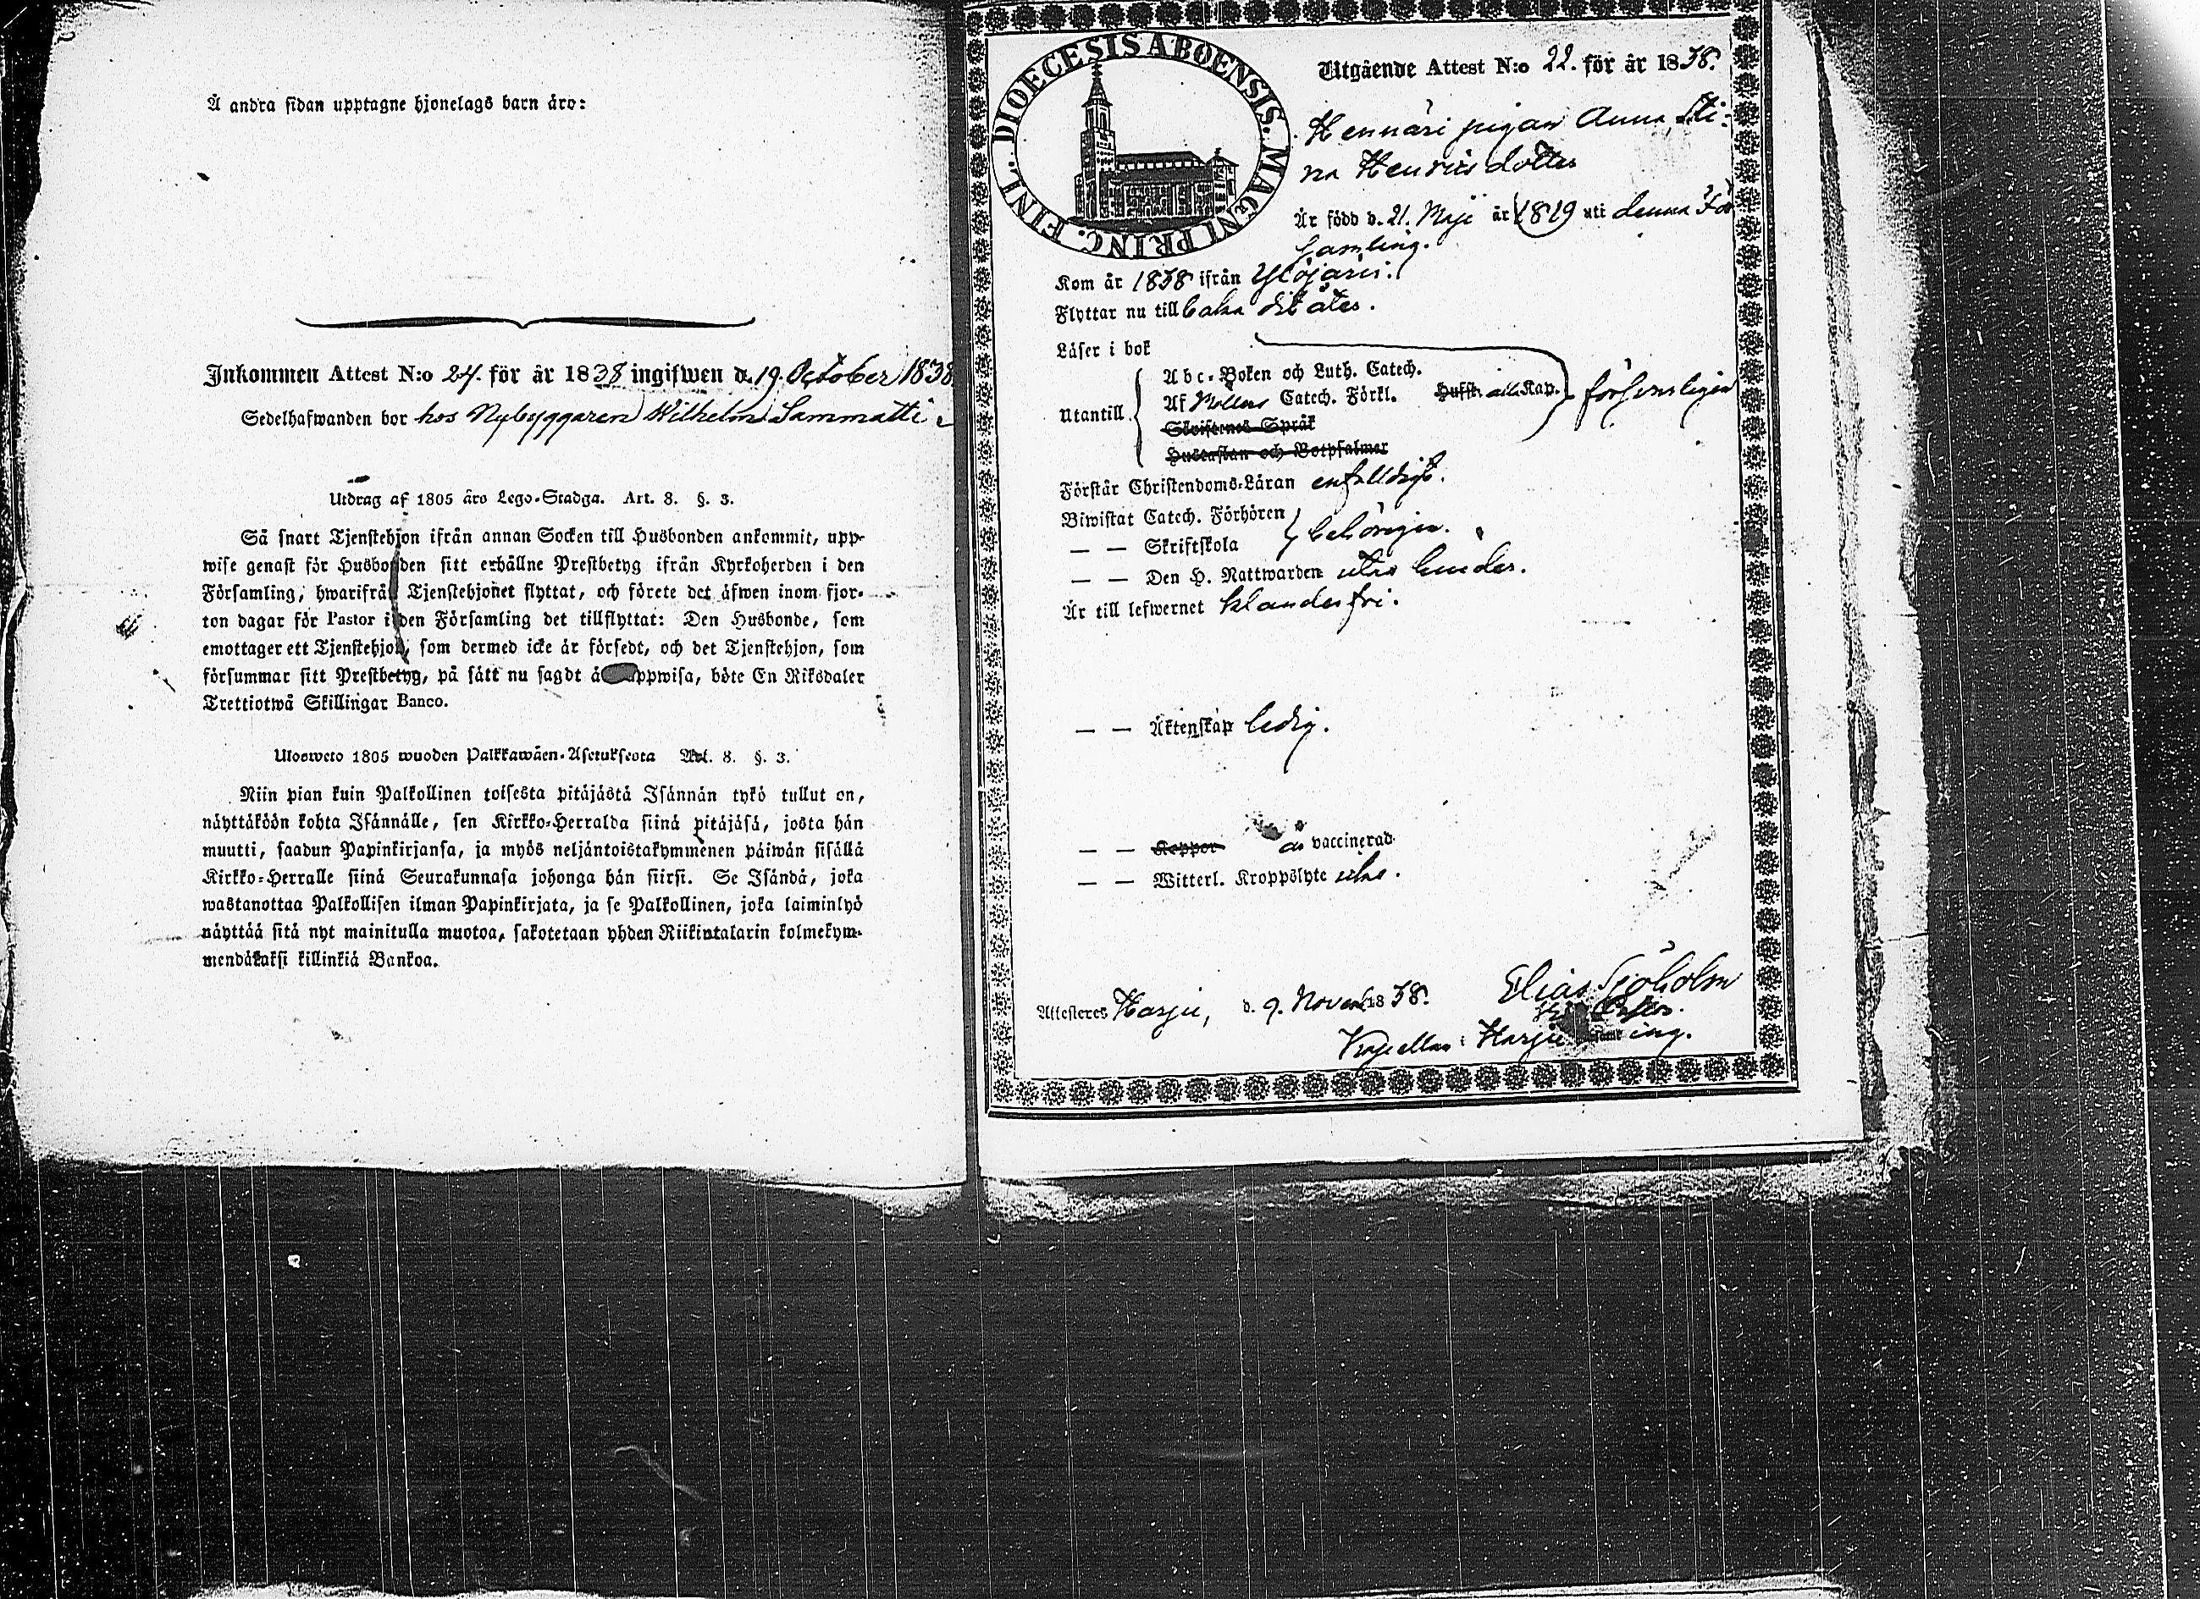 Å andra sidan upptagne hjonelags barn äro:
Inkommen Attest N:o 24. för år 1838 ingifwen d. 19. October 1838
Sedelhafwanden bor hos Nybyggaren Wilhelm Sammatti
Utdrag af 1805 års Lego-Stadga. Art. 8. §. 3.
Så snart Tjenstehjon ifrån annan Socken till Husbonden ankommit, upp-
wise genast för Husbonden sitt erhållne Prestbetyg ifrån Kyrkoherden i den
Församling, hwarifrån Tjenstehjonet flyttat, och förete det äfwen inom fjor-
ton dagar för Pastor i den Församling det tillflyttat: Den Husbonde, som
emottager ett Tjenstehjon, som dermed icke är försedt, och det Tjenstehjon, som
försummar sitt Prestbetyg, på sätt nu sagdt är uppwisa, böte En Riksdaler
Trettiotwå Skillingar Banco.
Ulosweto 1805 wuoden Palkkawäen-Asetuksesta Art. 8. §. 3.
Niin pian kuin Palkollinen toisesta pitäjästä Isännän tykö tullut on,
näyttäköön kohta Isännälle, sen Kirkko-Herralda siinä pitäjäsä, josta hän
muutti, saadun Papinkirjansa, ja myös neljäntoistakymmenen päiwän sisällä
Kirkko-Herralle siinä Seurakunnasa johonga hän siirsi. Se Isändä, joka
wastanottaa Palkollisen ilman Papinkirjata, ja se Palkollinen, joka laiminlyö
näyttää sitä nyt mainitulla muotoa, sakotetaan yhden Riikintalarin kolmekym-
mendäkaksi killinkiä Bankoa.
DIOECESIS ABOENSIS. MAGNI PRINC. FINL.
Utgående Attest N:o 22. för år 1838.
Hennäri pigan Anna Sti-
na Henricsdotter
Är född d. 21. Maji år 1819 uti denna För
samling.
Kom år 1838 ifrån Ylöjärvi.
Flyttar nu till baka dit åter.
Läser i bok
Utantill
Abc-Boken och Luth. Catech.
Af Möllers Catech. Förkl. Huffst. alla Kap. försvarligen
Skriftenes Språk
Hustaflan och Botpsalmer
Förstår Christendoms-Läran enfalldigt.
Biwistat Catech. Förhören
— — Skriftskola behörigen.
— — Den H. Nattwarden utan hinder.
Är till lefwernet klanderfri.
— — Äktenskap ledig.
— — Koppor är vaccinerad
— — Witterl. Kroppslyte utan.
Attesteres Harju, d. 9. Novemb 1838.
Elias Sjöholm
Kapellan i Harju ing.